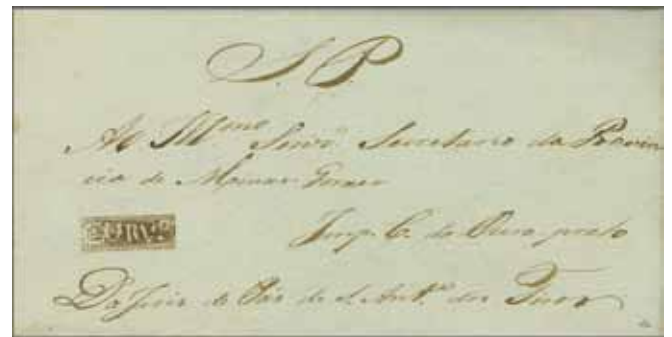 S. P.
Ao Illmo Senr. Secretario da Provin
cia de Minas Geraes
Imp. C. do Ouro preto
Do Juiz de Paz de S. Antº do